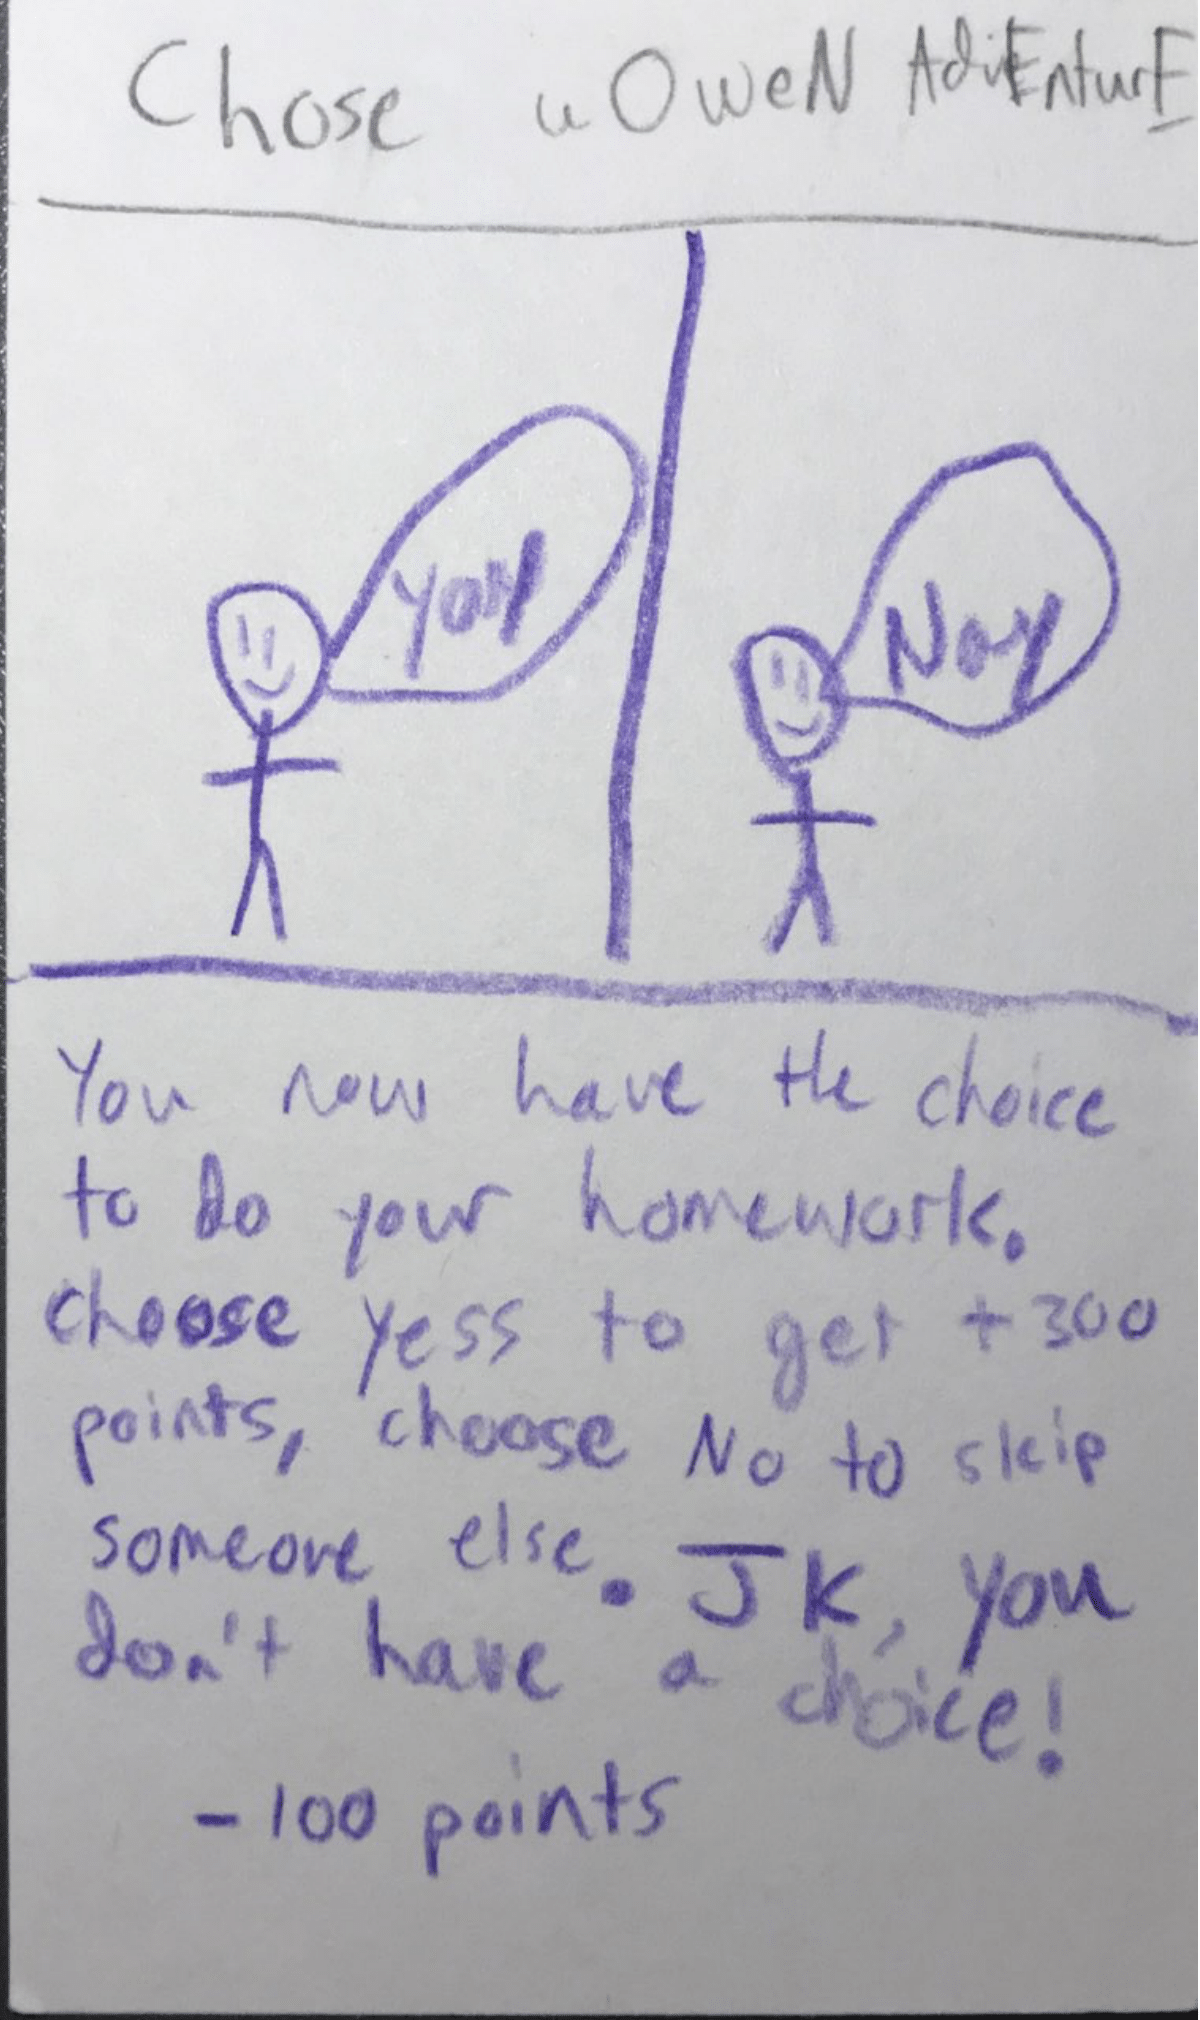 Chose u OweN AdvEnturE
Yay
Nay
You now have the choice
to do your homework.
choose yess to get +300
points, choose No to skip
someone else. JK, you
don't have a choice!
-100 points